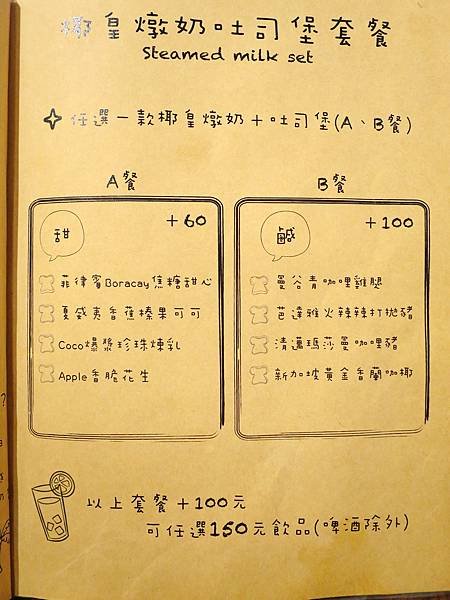 椰皇燉奶吐司堡套餐
Steamed milk set
任選一款椰皇燉奶+吐司堡(A、B餐)
A餐
甜
+60
菲律賓Boracay焦糖甜心
夏威夷香蕉榛果可可
Coco爆漿珍珠煉乳
Apple香脆花生
B餐
鹹
+100
曼谷青咖哩雞腿
芭達雅火辣辣打拋豬
清邁瑪莎曼咖哩豬
新加坡黃金香蘭咖椰
以上套餐+100元
可任選150元飲品(啤酒除外)